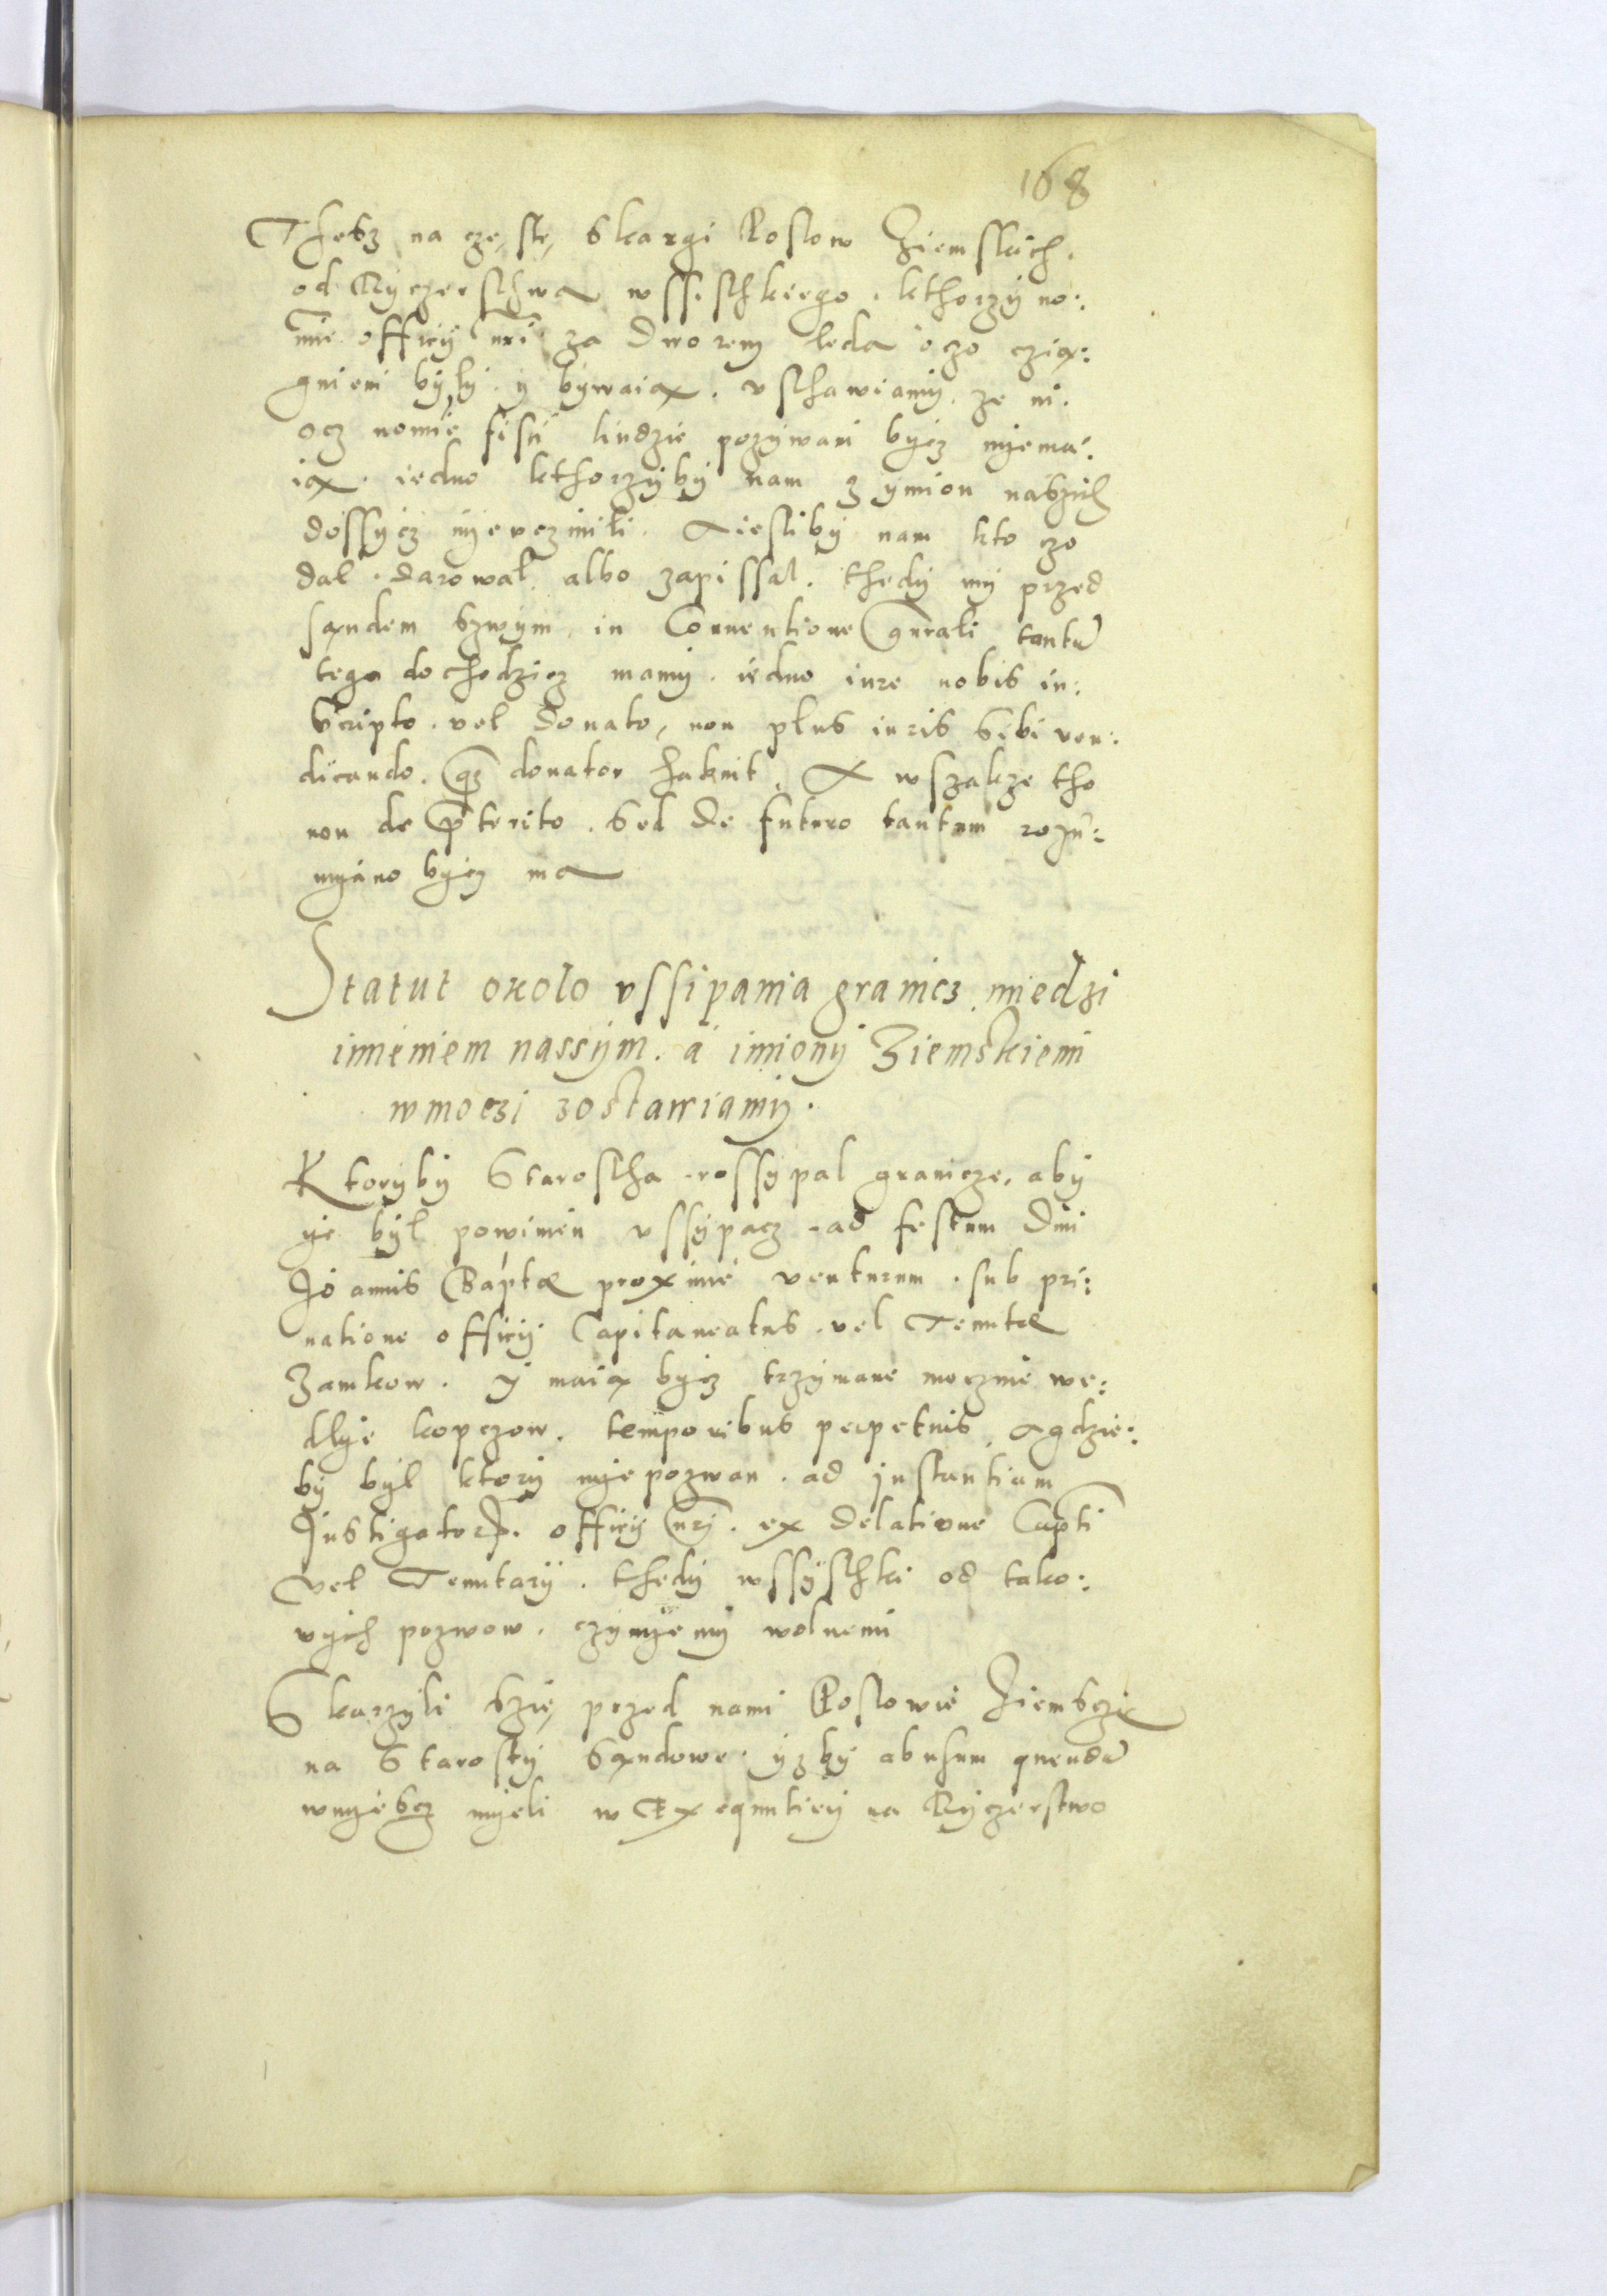 168
Thesz na częste skargi Posłow Ziemskich.
od Ryczerschwa wssischkiego. kthorzy no:
mine officij nri za Dworem leda oczo czią:
gnieni byly y bywaią. vschawiamy. ze ni.
ocz nomine fisci liudzie pozywani bycz nyema:
ią. iedno kthorzyby nam z ymion naszich
dossycz nyevczinili. A iesliby nam kto czo
dal. darowal albo zapissal. thedy my przed
sąndem szwym, in Conuentione gnrali tantu
tego dochodzicz mamy. iedno iure nobis in:
scripto. vel donato, non plus iuris sibi ven:
dicando. qz donator habuit. A wszakze tho
non de pterito. sed de futuro tantum rozu:
myano bycz ma
Statut około vssipania granicz miedzi
imieniem nassym. a imiony Ziemskiemi
w moczi zostawiamy.
Ktoryby Staroscha rossypal granicze, aby
ye byl powinien vssypacz ad festum Diui
Joannis Baptæ proxime venturum. sub pri:
uatione officij Capitaneatus. vel Tenutæ
Zamkow. y maią bycz trzymane mocznie we:
dlye kopczow. temporibus perpetuis. A gdzie:
by byl ktory nye pozwan. ad jnstantiam
Instigatorp. officij nrj. ex delatione Capti
vel Tenutarij. thedy wssyschki od tako:
vych pozwow. czynyemy wolnemi
Skarzyli szie przed nami Poslowie Ziemsczi
na Starosty sąndowe. yzby abusum quendā
wnyesz myeli w Exequutiey na Ryczerstwo